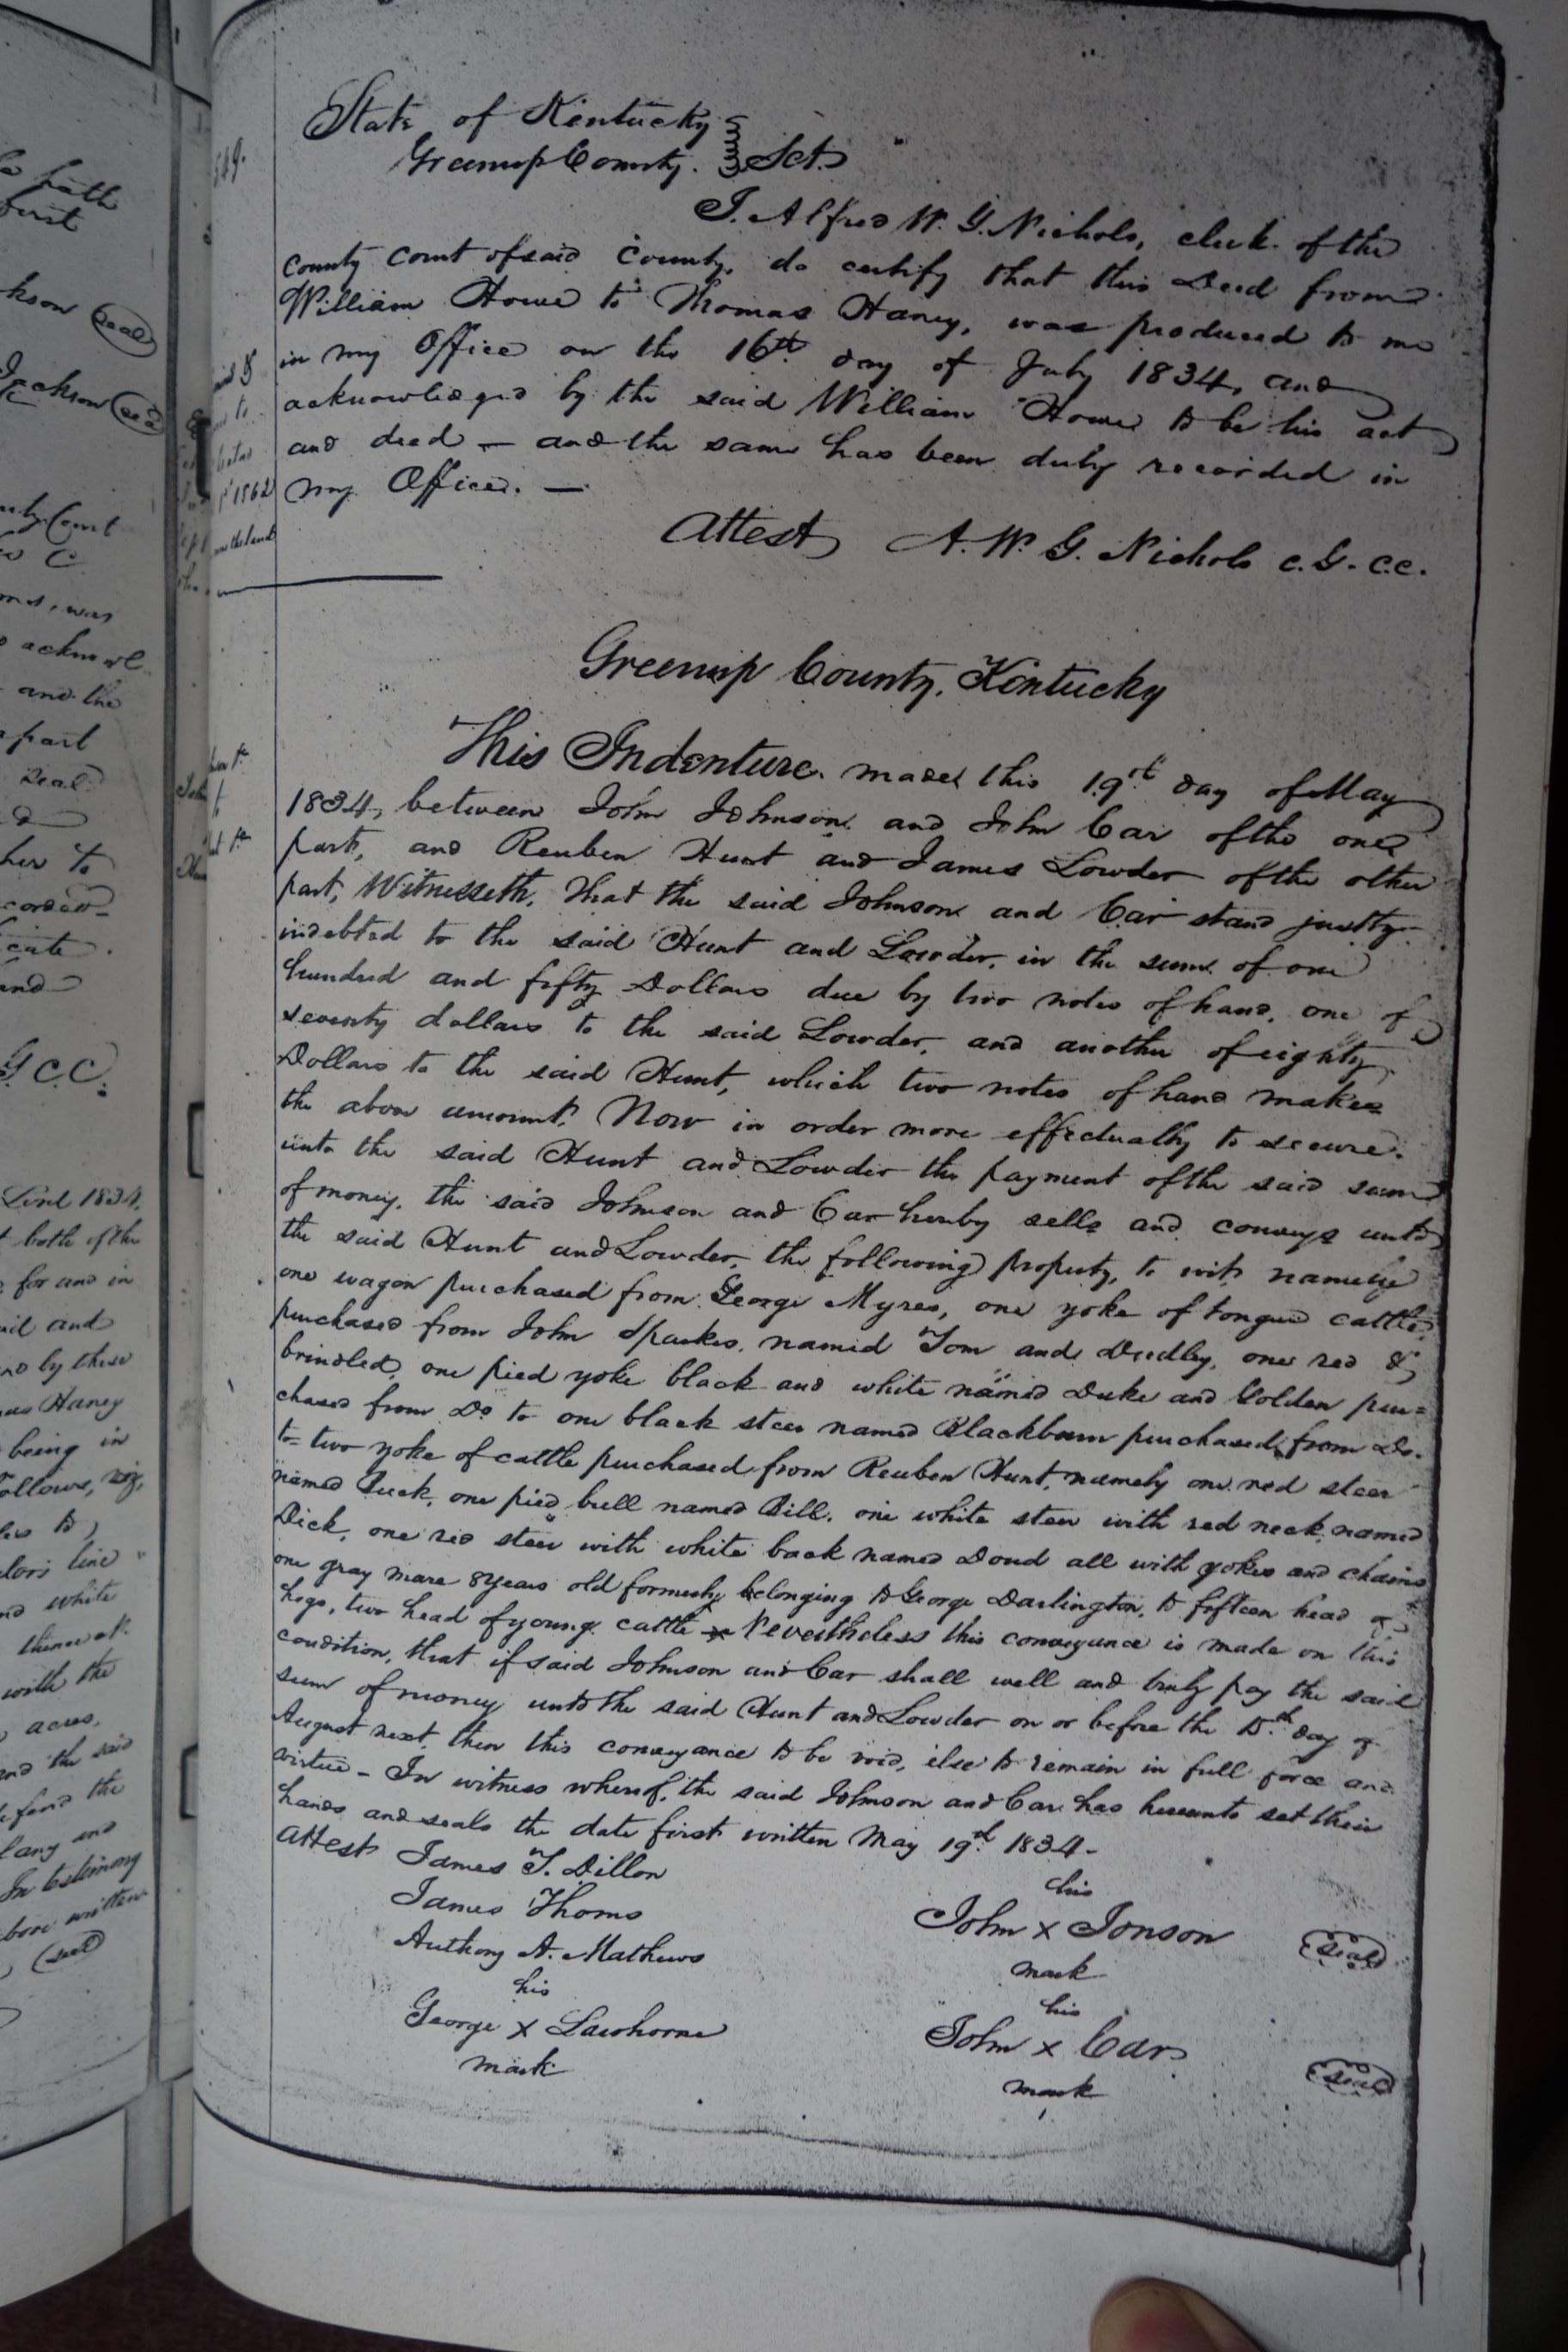 State of Kentucky
Greenup County. Sct.
I. Alfred W. G. Nichols, clerk of the
county court of said county, do certify that this Deed from
William Howe to Thomas Haney, was produced to me
in my Office on the 16th day of July 1834, and
acknowledged by the said William Howe to be his act
and deed — and the same has been duly recorded in
my Office. —
Attest A. W. G. Nichols C. G. C. C.
Greenup County, Kentucky
This Indenture made this 19th day of May
1834, between John Johnson and John Car of the one
part, and Reuben Hunt and James Lowder of the other
part, Witnesseth, that the said Johnson and Car stand justly
indebted to the said Hunt and Lowder, in the sum of one
hundred and fifty Dollars due by two notes of hand, one of
seventy dollars to the said Lowder, and another of eighty
Dollars to the said Hunt, which two notes of hand makes
the above amount. Now in order more effectually to secure
unto the said Hunt and Lowder the payment of the said sum
of money, the said Johnson and Car hereby sells and conveys unto
the said Hunt and Lowder, the following property, to wit, namely
one wagon purchased from George Myres, one yoke of tongue cattle
purchased from John Sparkes, named Tom and Dudley, one red &
brindled, one pied yoke black and white named Duke and Golden pur=
chased from Do to one black steer named Blackburn purchased from Do.
to two yoke of cattle purchased from Reuben Hunt, namely one red steer
named Buck, one pied bull named Bill. one white steer with red neck named
Dick, one red steer with white back named Doud all with yokes and chains
one gray mare 8 years old formerly belonging to George Darlington, to fifteen head of
hogs, two head of young cattle Nevertheless this conveyance is made on this
condition, that if said Johnson and Car shall well and truly pay the said
sum of money unto the said Hunt and Lowder on or before the 15th day of
August next, then this conveyance to be void, else to remain in full force and
virtue - In witness whereof, the said Johnson and Car has hereunto set their
hands and seals the date first written May 19th 1834-
Attest James T. Dillon
James Thoms
Anthony A. Mathews
his
George x Lawhorne
mark
his
John x Jonson seal
mark
his
John x Car seal
mark